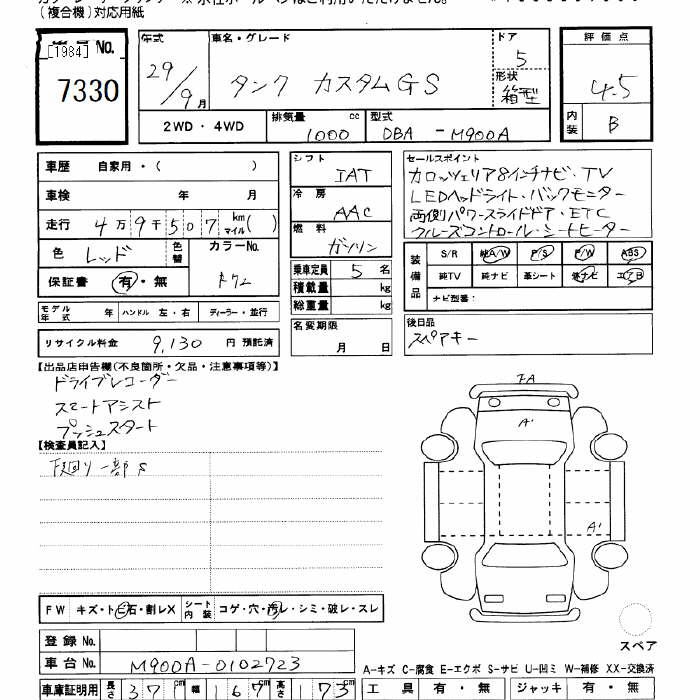 (複合機)対応用紙
[1984] No. 7330
年式 29/9月
車名・グレード タンク カスタムGS
ドア 5
形状 箱型
評価点 4.5
内装 B
2WD・4WD
排気量 1000 cc
型式 DBA-M900A
車歴 自家用・( )
車検 年 月
走行 4万9千507 km マイル( )
色 レッド 色替
カラーNo.
保証書 有・無
モデル年式 年 ハンドル 左・右 ディーラー・並行
リサイクル料金 9,130 円 預託済
シフト IAT
冷房 AAC
燃料 ガソリン
乗車定員 5 名
積載量 kg
総重量 kg
名変期限 月 日
セールスポイント
カロッツェリア8インチナビ・TV
LEDヘッドライト・バックモニター
両側パワースライドドア・ETC
クルーズコントロール・シートヒーター
装備品 S/R 純A/W P/S P/W ABS
純TV 純ナビ 革シート 純ナビ エアB
ナビ型番:
後日品
スペアキー
【出品店申告欄(不良箇所・欠品・注意事項等)】
ドライブレコーダー
スマートアシスト
プッシュスタート
【検査員記入】
下廻り一部S
FA
A'
A'
スペア
FW キズ・ト石・割レX シート内装 コゲ・穴・汚レ・シミ・破レ・スレ
登録No.
車台No. M900A-0102723
A-キズ C-腐食 E-エクボ S-サビ U-凹ミ W-補修 XX-交換済
車庫証明用 長さ 371cm 幅 167cm 高さ 173cm
工具 有・無 ジャッキ 有・無